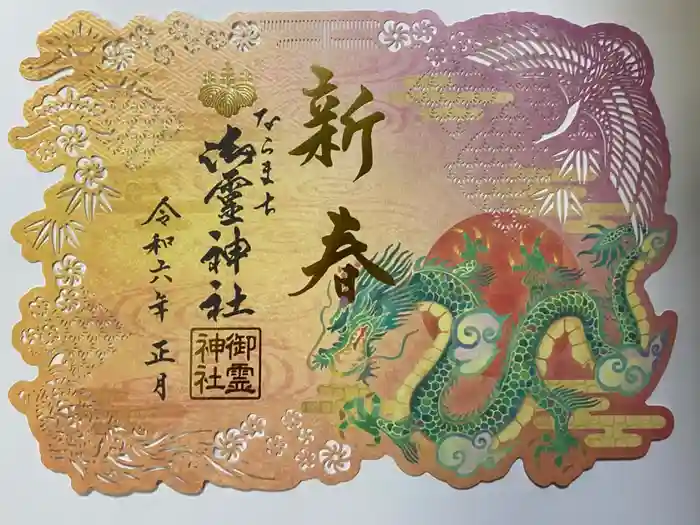 新春
ならまち
御靈神社
御霊
神社
令和六年 正月